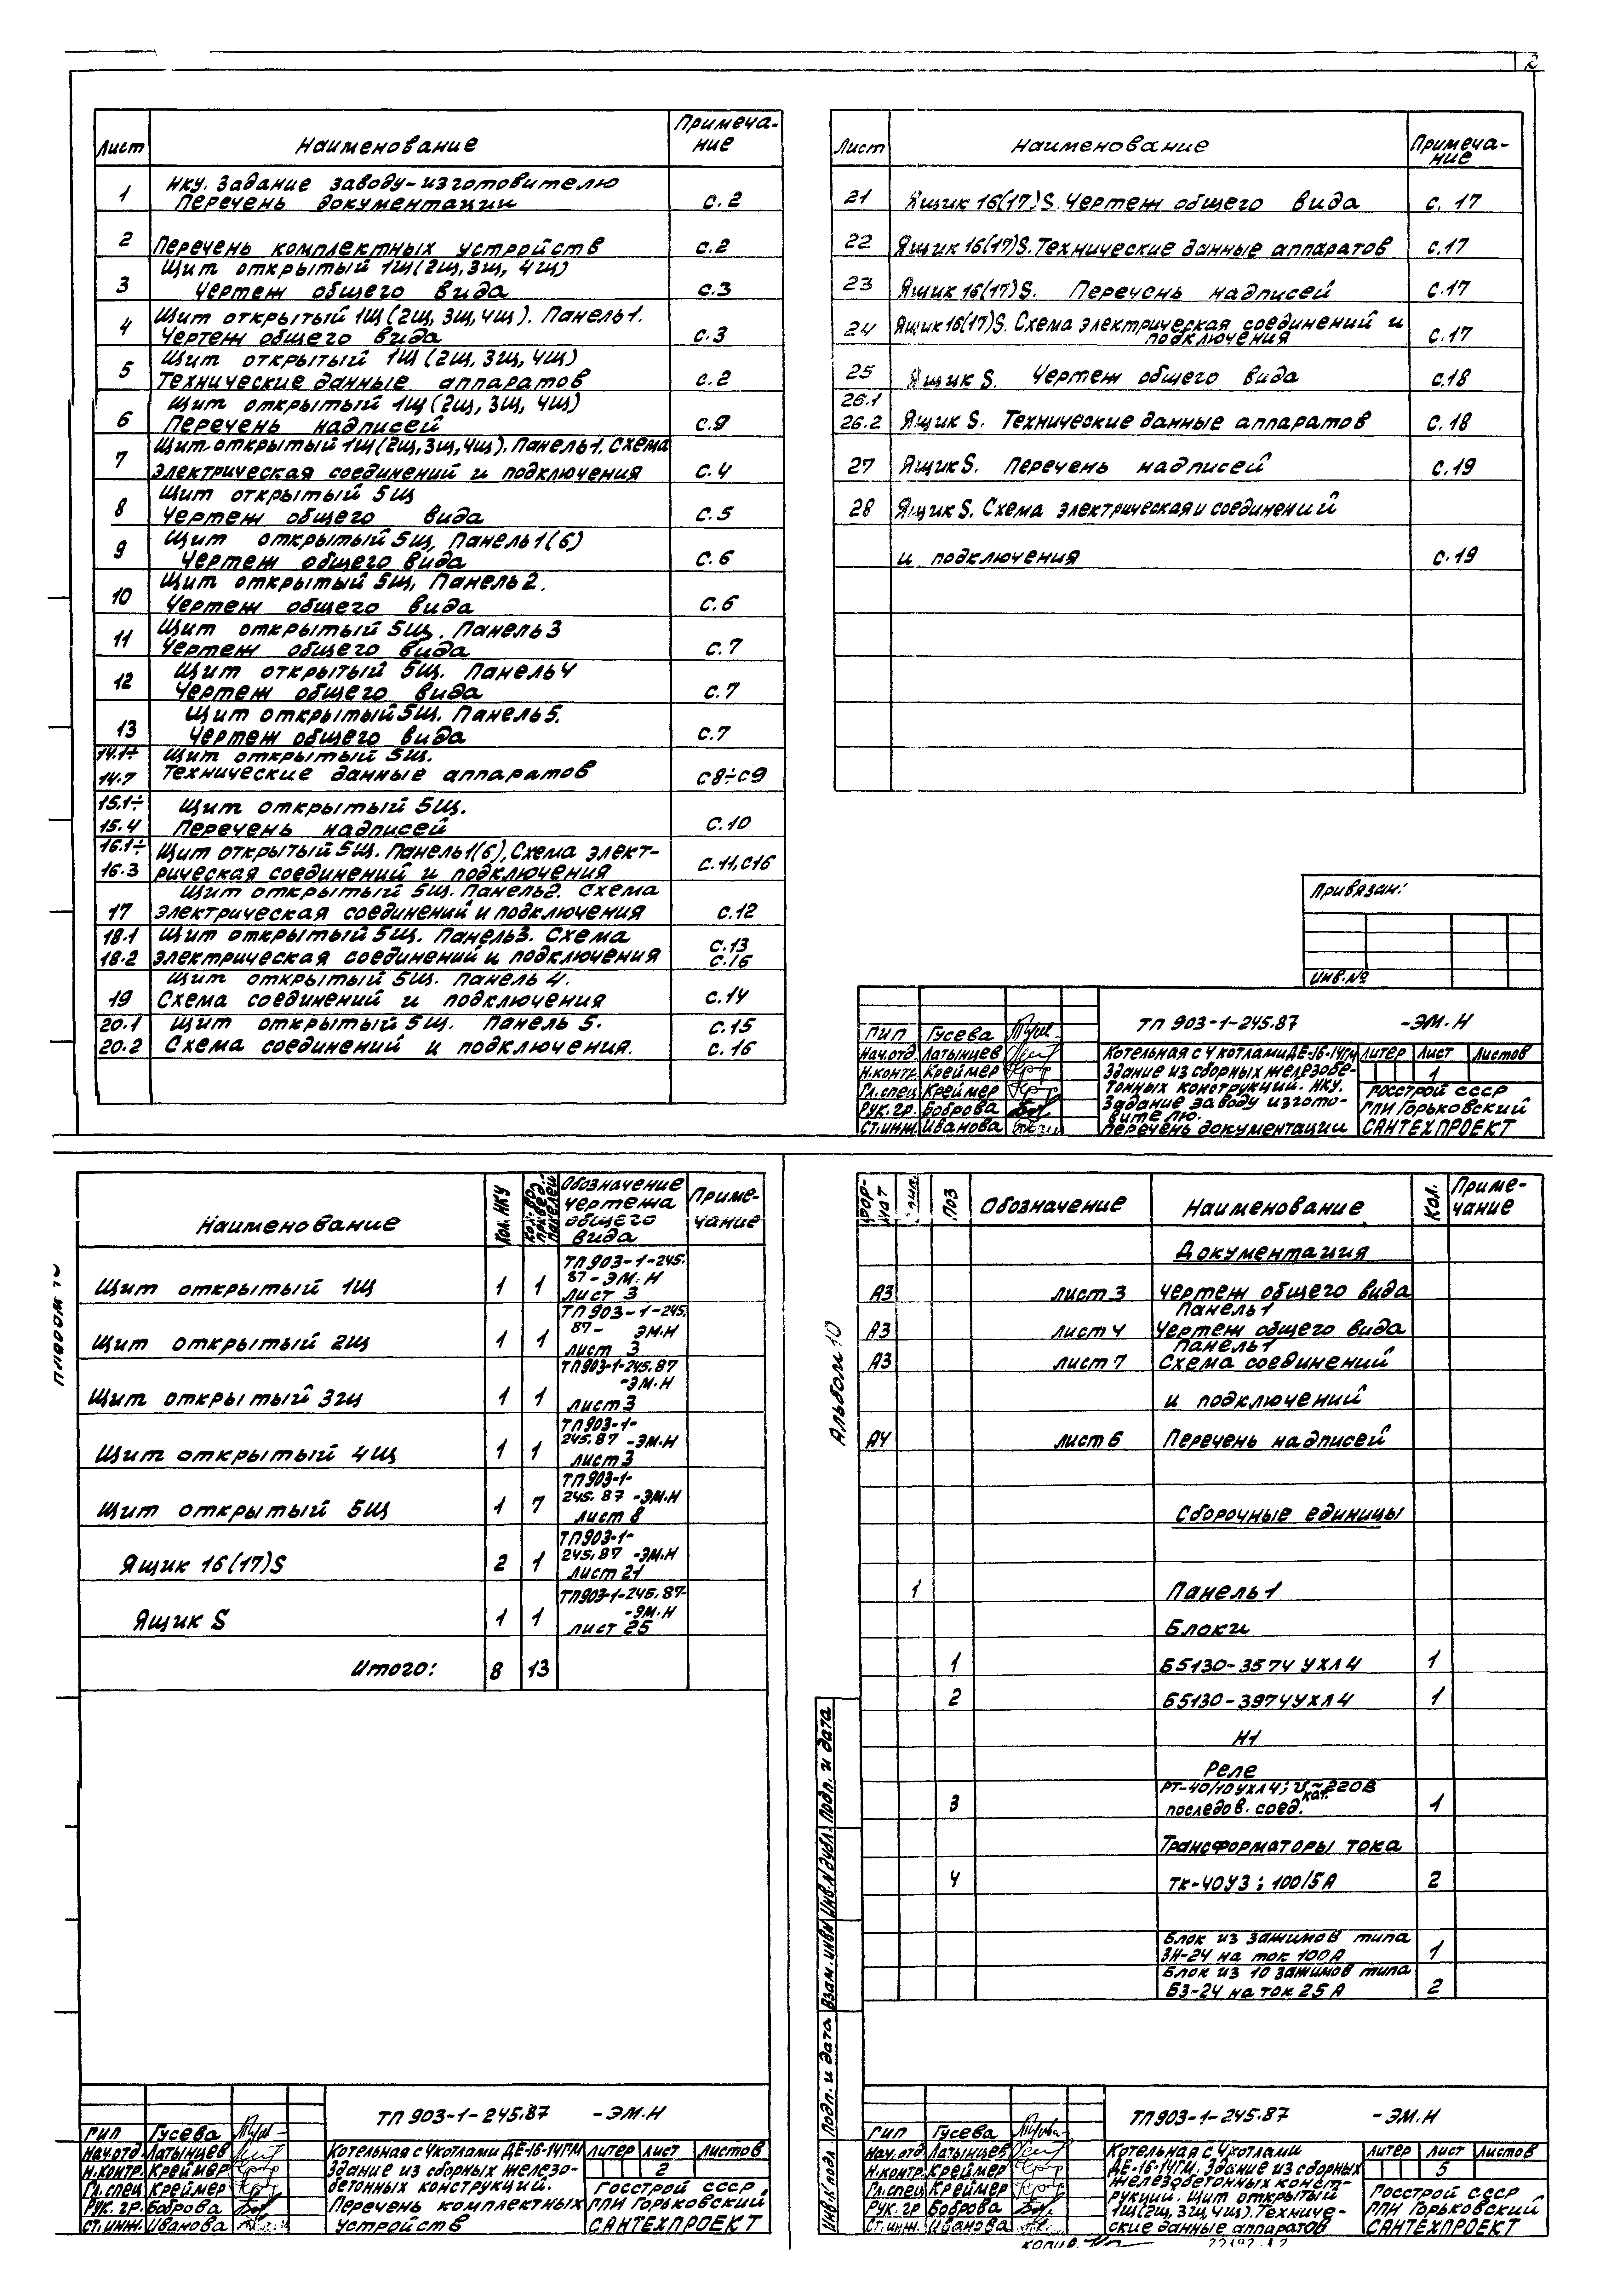 2
Лист Наименование Примеча-
ние
1 НКУ. Задание заводу-изготовителю
Перечень документации с.2
2 Перечень комплектных устройств с.2
3 Щит открытый 1Щ(2Щ,3Щ, 4Щ)
Чертеж общего вида с.3
4 Щит открытый 1Щ(2Щ,3Щ,4Щ). Панель1.
Чертеж общего вида с.3
5 Щит открытый 1Щ(2Щ,3Щ,4Щ)
Технические данные аппаратов с.2
6 Щит открытый 1Щ(2Щ,3Щ,4Щ)
Перечень надписей с.9
7 Щит открытый 1Щ(2Щ,3Щ,4Щ). Панель1. Схема
электрическая соединений и подключения с.4
8 Щит открытый 5Щ
Чертеж общего вида с.5
9 Щит открытый 5Щ, Панель1(6)
Чертеж общего вида с.6
10 Щит открытый 5Щ, Панель2.
Чертеж общего вида с.6
11 Щит открытый 5Щ. Панель3
Чертеж общего вида с.7
12 Щит открытый 5Щ. Панель4
Чертеж общего вида с.7
13 Щит открытый 5Щ. Панель5.
Чертеж общего вида с.7
14.1÷ Щит открытый 5Щ.
14.7 Технические данные аппаратов с8÷с9
15.1÷ Щит открытый 5Щ.
15.4 Перечень надписей с.10
16.1÷ Щит открытый 5Щ. Панель1(6), Схема элект-
16.3 рическая соединений и подключения с.11,с16
Щит открытый 5Щ. Панель2. Схема
17 электрическая соединений и подключения с.12
18.1 Щит открытый 5Щ. Панель3. Схема с.13
18.2 электрическая соединений и подключения с.16
Щит открытый 5Щ. Панель 4.
19 Схема соединений и подключения с.14
20.1 Щит открытый 5Щ. Панель 5. с.15
20.2 Схема соединений и подключения. с.16
Лист Наименование Примеча-
ние
21 Ящик 16(17)S. Чертеж общего вида с. 17
22 Ящик 16(17)S. Технические данные аппаратов с.17
23 Ящик 16(17)S. Перечень надписей с.17
24 Ящик 16(17)S. Схема электрическая соединений и
подключения с.17
25 Ящик S. Чертеж общего вида с.18
26.1
26.2 Ящик S. Технические данные аппаратов с.18
27 Ящик S. Перечень надписей с.19
28 Ящик S. Схема электрическая и соединений
и подключения с.19
Привязан:
Инв.№
ТП 903-1-245.87 -ЭМ.Н
ГИП Гусева
Нач.отд. Латынцев
Н.контр. Креймер
Гл.спец Креймер
Рук.гр. Боброва
Ст.инж. Иванова
Котельная с 4 котлами ДЕ-16-14ГМ
Здание из сборных железобе-
тонных конструкций. НКУ.
Задание заводу изгото-
вителю.
Перечень документации
Литер Лист Листов
1
Госстрой СССР
ГПИ Горьковский
САНТЕХПРОЕКТ
Наименование Кол. НКУ Обозначение
чертежа
общего
вида Приме-
чание
Щит открытый 1Щ 1 1 ТП903-1-245.
87-ЭМ.Н
лист 3
Щит открытый 2Щ 1 1 ТП903-1-245.
87- ЭМ.Н
лист 3
Щит открытый 3Щ 1 1 ТП903-1-245.87
-ЭМ.Н
лист3
Щит открытый 4Щ 1 1 ТП903-1-
245.87 -ЭМ.Н
лист3
Щит открытый 5Щ 1 7 ТП903-1-
245.87 -ЭМ.Н
лист 8
Ящик 16(17)S 2 1 ТП903-1-
245.87 -ЭМ.Н
лист 21
Ящик S 1 1 ТП903-1-245.87-
-ЭМ.Н
лист 25
Итого: 8 13
ТП 903-1-245.87 -ЭМ.Н
ГИП Гусева
Нач.отд. Латынцев
Н.контр. Креймер
Гл.спец Креймер
Рук.гр. Боброва
Ст.инж. Иванова
Котельная с 4котлами ДЕ-16-14ГМ
Здание из сборных железо-
бетонных конструкций.
Перечень комплектных
устройств
Литер Лист Листов
2
Госстрой СССР
ГПИ Горьковский
САНТЕХПРОЕКТ
Альбом 10
Фор-
мат Поз Обозначение Наименование Кол. Приме-
чание
Документация
А3 лист 3 Чертеж общего вида
Панель1
А3 лист 4 Чертеж общего вида
Панель1
А3 лист 7 Схема соединений
и подключений
А4 лист 6 Перечень надписей
Сборочные единицы
1 Панель 1
Блоки
1 Б5130-3574 УХЛ4 1
2 Б5130-3974УХЛ4 1
Н1
Реле
РТ-40/10УХЛ4; U~220В
3 последов. соед. кат. 1
Трансформаторы тока
4 ТК-40У3; 100/5А 2
Блок из зажимов типа
ЗН-24 на ток 100А 1
Блок из 10 зажимов типа
БЗ-24 на ток 25А 2
Инв.№подл Подп. и дата Взам.инв№ Инв.№дубл. Подп. и дата
ТП903-1-245.87 -ЭМ.Н
ГИП Гусева
Нач.отд Латынцев
Н.контр. Креймер
Гл.спец Креймер
Рук.гр Боброва
Ст.инж. Иванова
Котельная с 4котлами
ДЕ-16-14ГМ. Здание из сборных
железобетонных конст-
рукций. Щит открытый
1Щ(2Щ, 3Щ, 4Щ). Техниче-
ские данные аппаратов
Литер Лист Листов
5
Госстрой СССР
ГПИ Горьковский
САНТЕХПРОЕКТ
Копир.